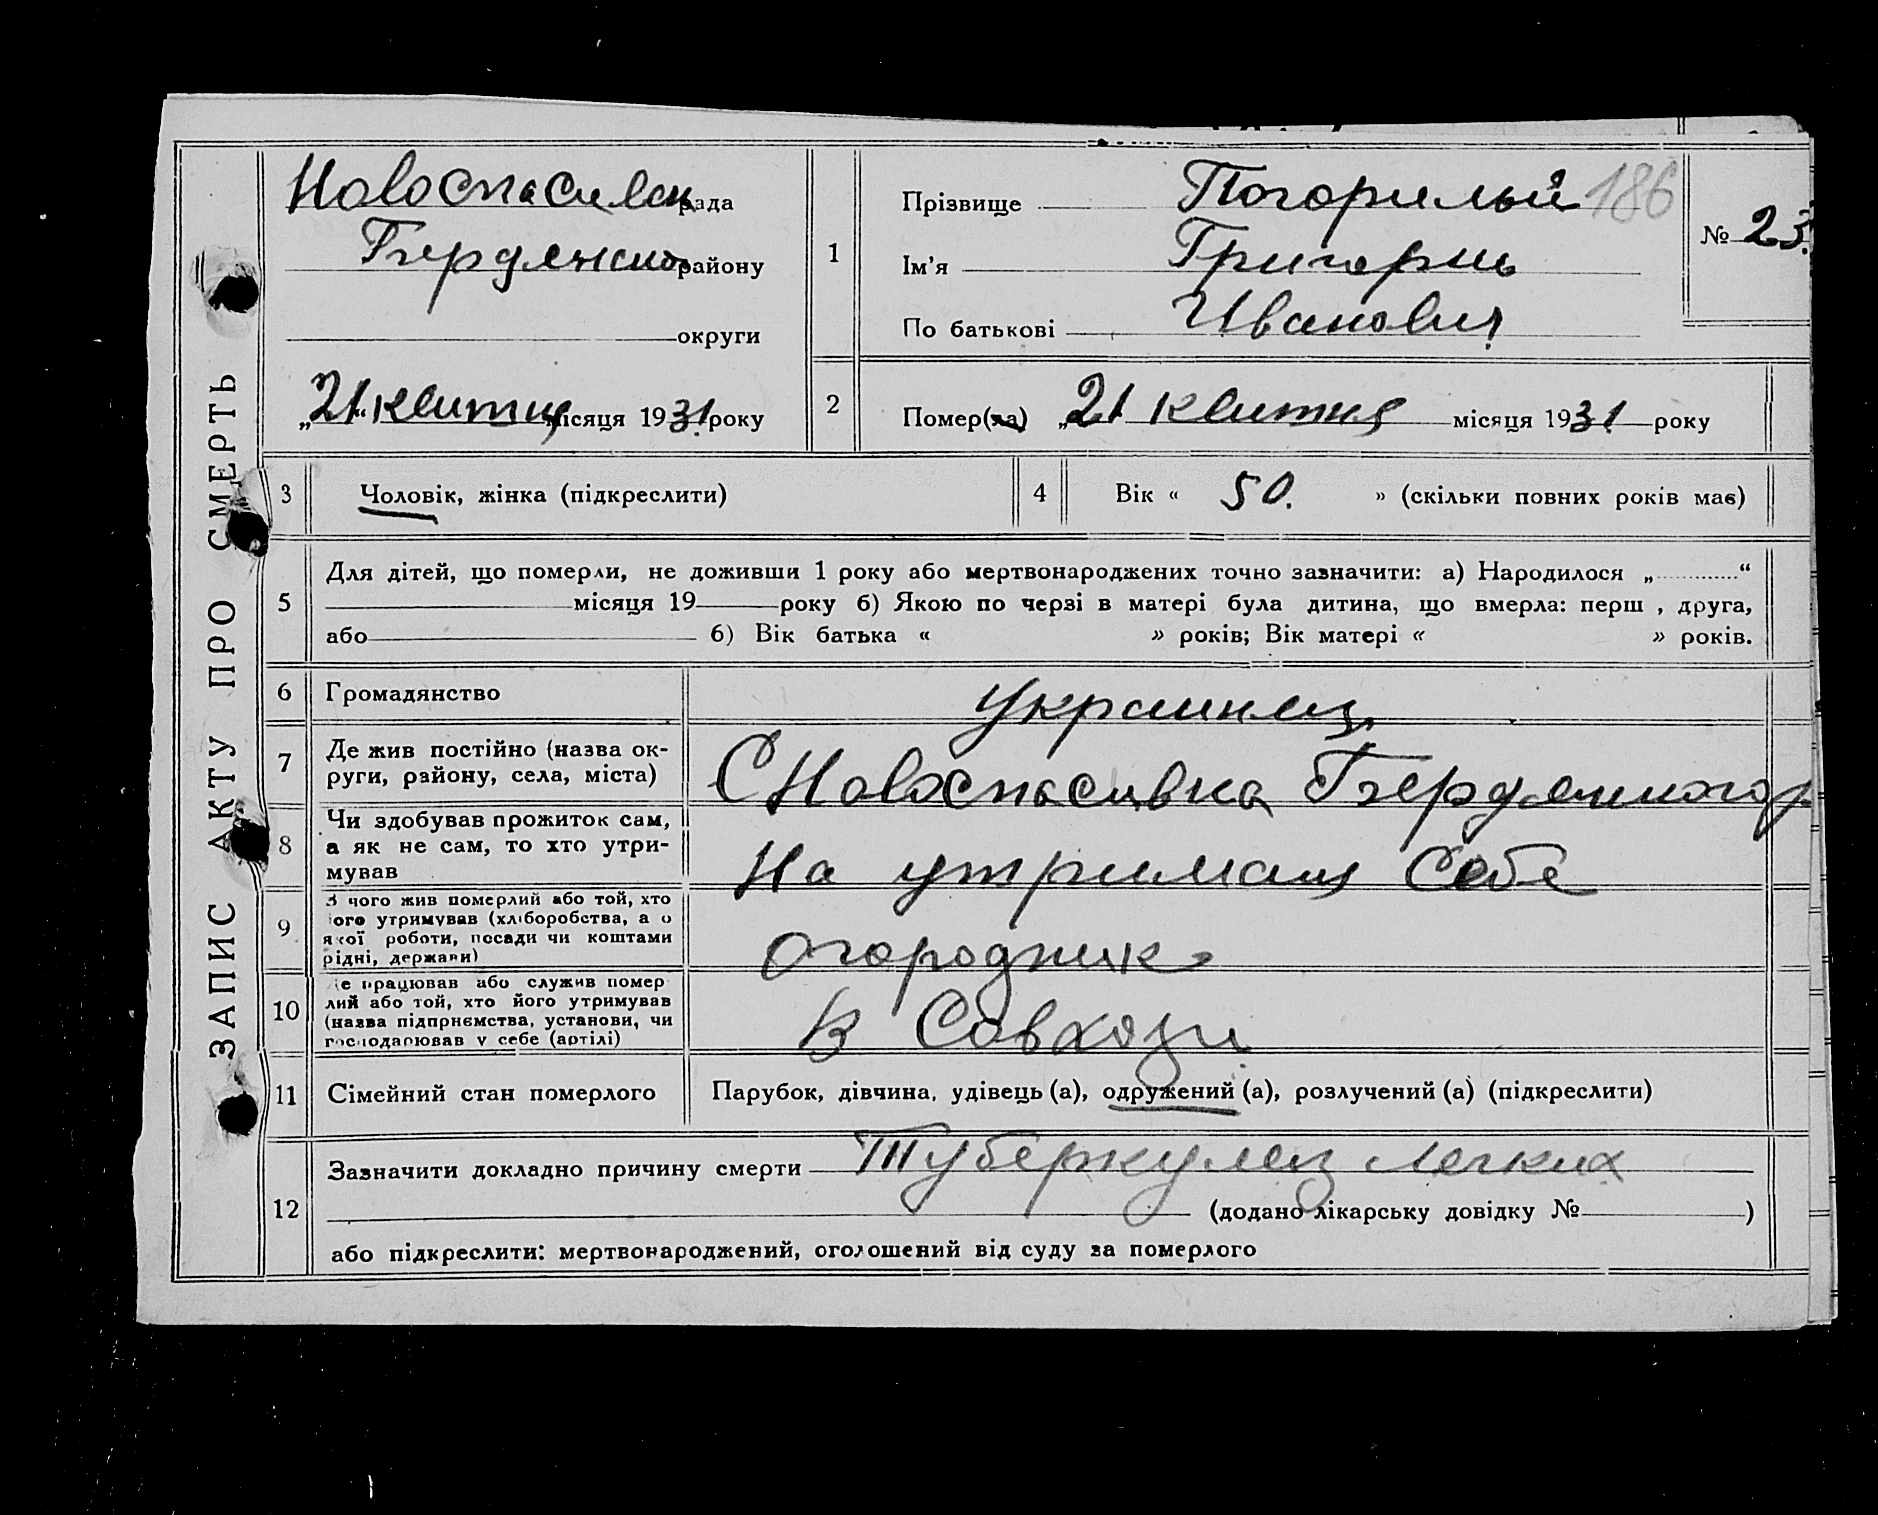 ЗАПИС АКТУ ПРО СМЕРТЬ
Новоспасивск рада
Бердянско району
округи
„21“ квитня місяця 1931. року
1
Прізвище Погорилый 186
Ім'я Григорий
По батькові Иванович
№ 23.
2
Помер(ла) „21 квитня місяця 1931. року
3 Чоловік, жінка (підкреслити)
4 Вік « 50. » (скільки повних років має)
5 Для дітей, що померли, не доживши 1 року або мертвонароджених точно зазначити: а) Народилося „ “
місяця 19 року б) Якою по черзі в матері була дитина, що вмерла: перш , друга,
або б) Вік батька « » років; Вік матері « » років.
6 Громадянство Украинец
7 Де жив постійно (назва ок-
руги, району, села, міста)
С Новоспасивка Бердянского р
8 Чи здобував прожиток сам,
а як не сам, то хто утри-
мував
На утримани Себе
9 З чого жив померлий або той, хто
ого утримував (хліборобства, а о
якої роботи, посади чи коштами
рідні, держави)
Огородник
10 е працював або служив помер
лий або той, хто його утримував
(назва підприємства, установи, чи
господарював у себе (артілі)
В Совхози
11 Сімейний стан померлого Парубок, дівчина, удівець (а), одружений (а), розлучений (а) (підкреслити)
12 Зазначити докладно причину смерти Туберкулез Легких
(додано лікарську довідку № )
або підкреслити: мертвонароджений, оголошений від суду за померлого